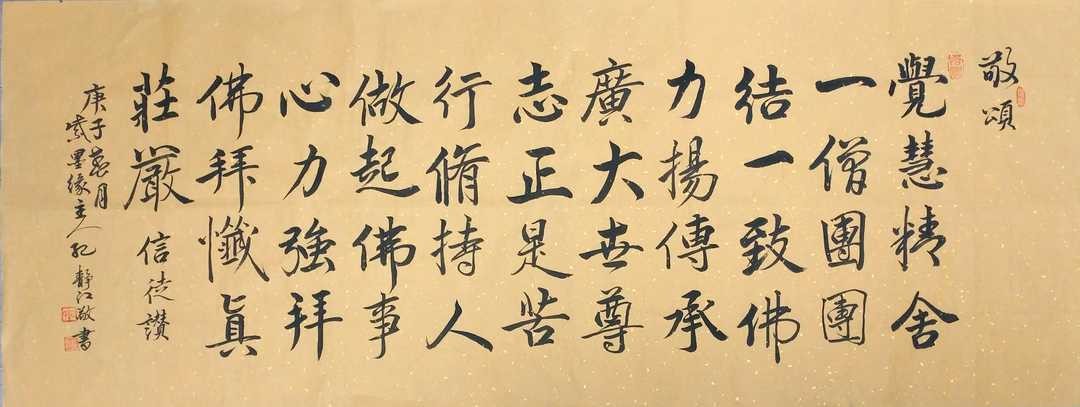 敬頌
覺慧精舍
一僧團團
結一致佛
力揚傳承
廣大世尊
志正是苦
行脩持人
做起佛事
心力強拜
佛拜懺眞
莊嚴信徒讚
庚子月
紫墨緣主人孔靜江敬書